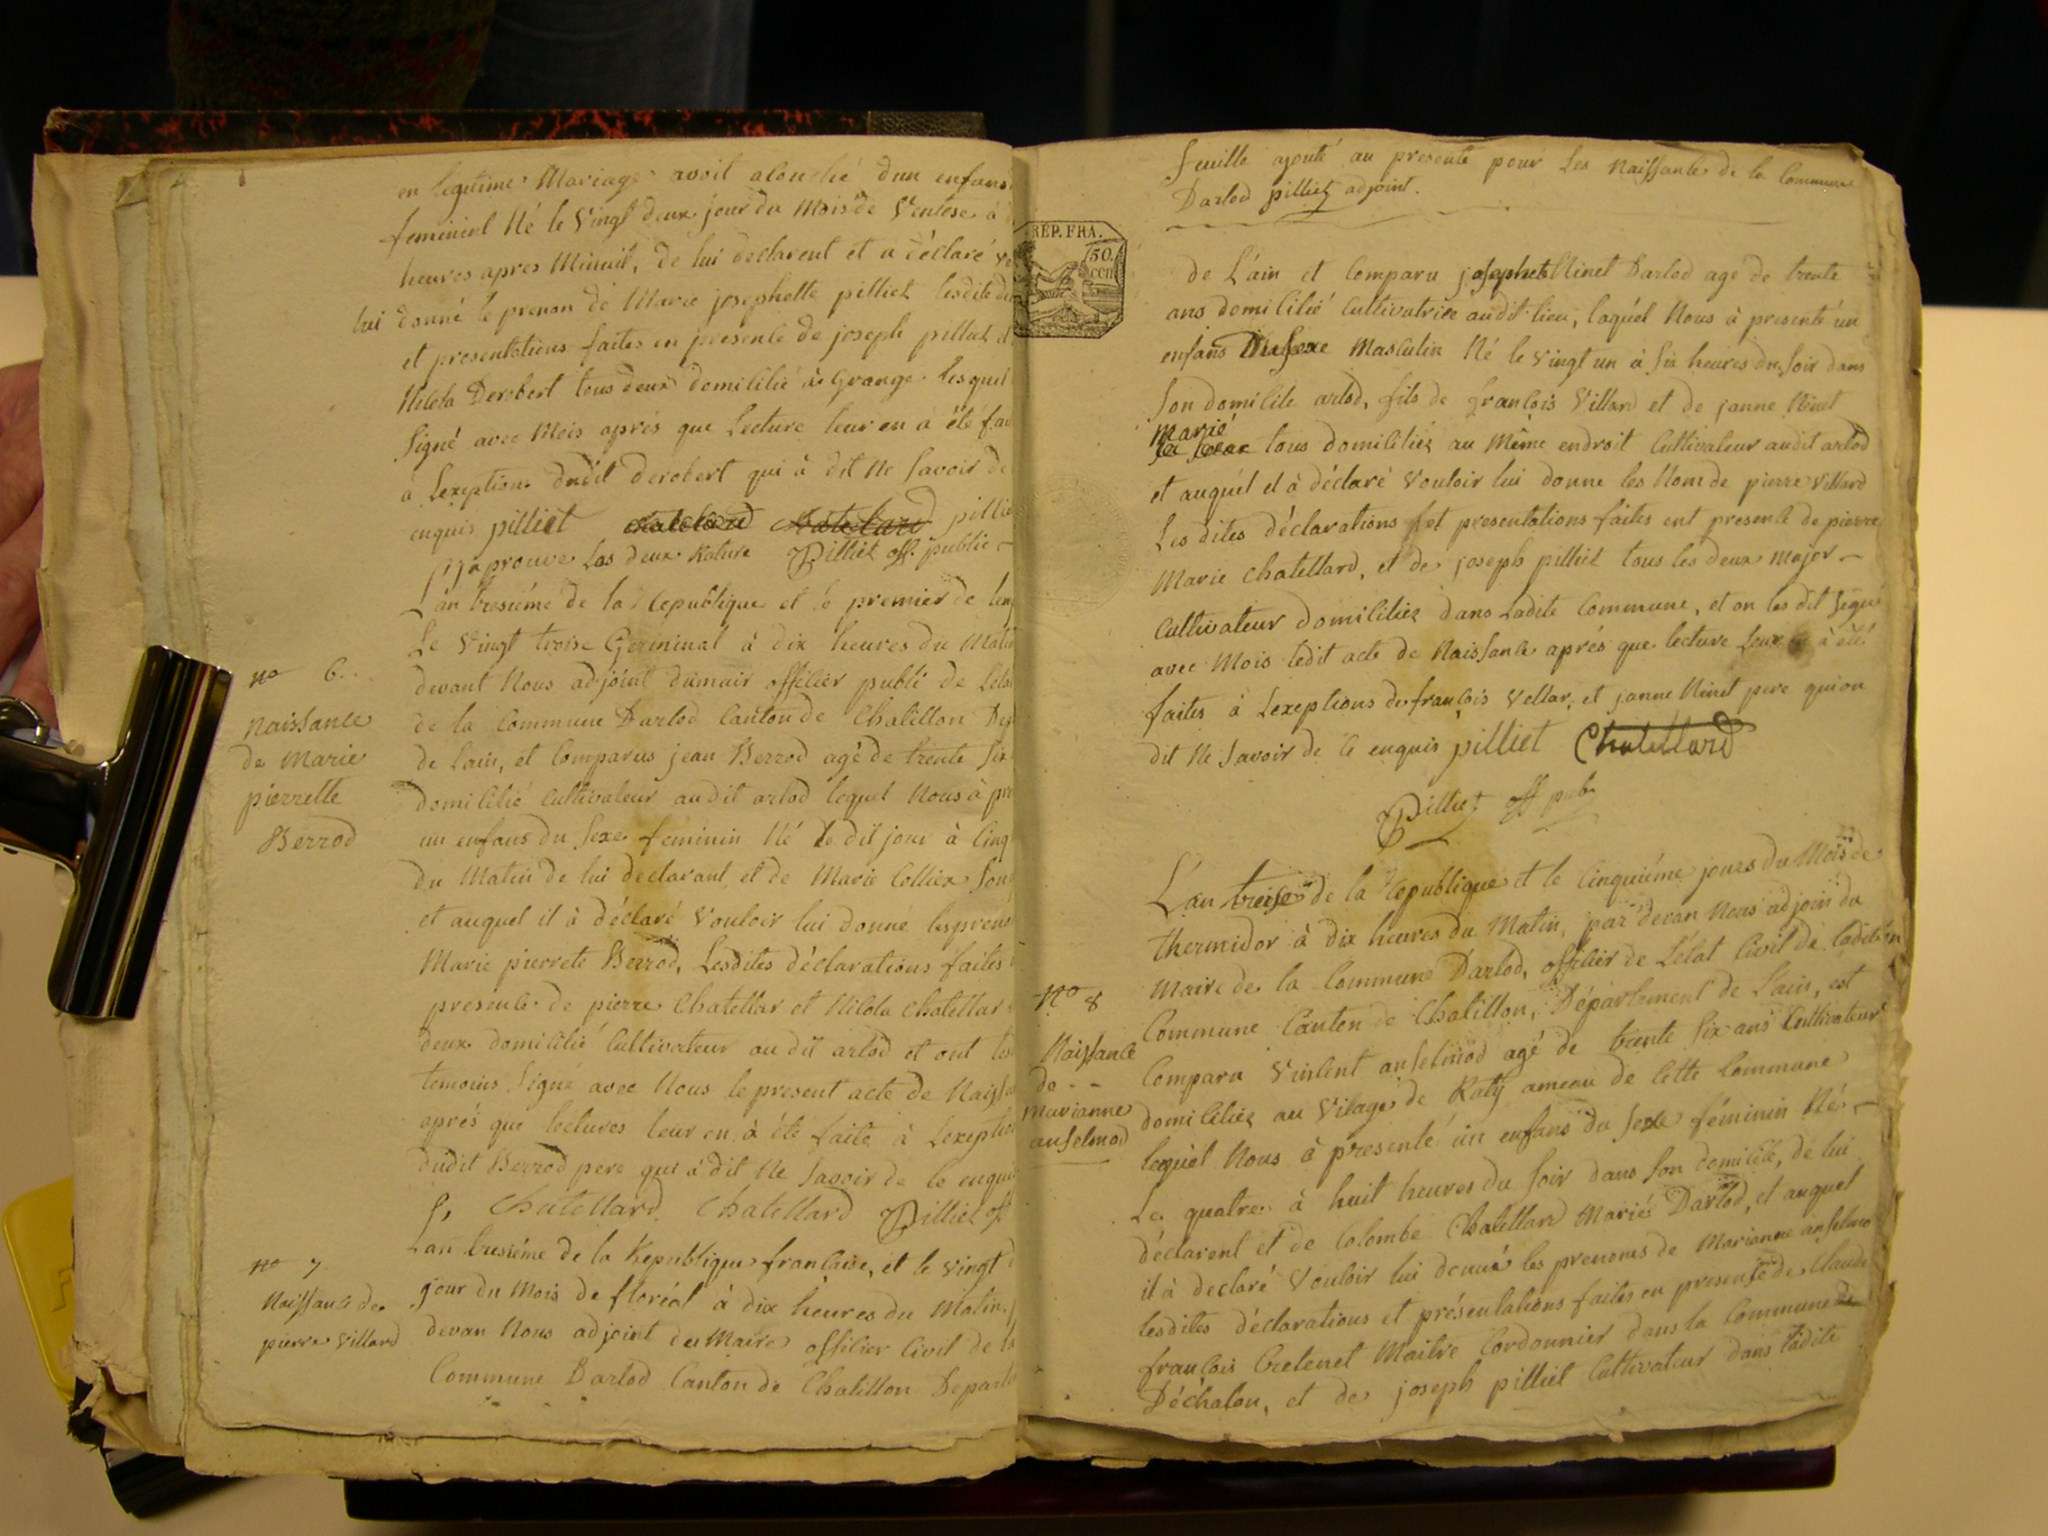 en legitime Mariage avoit alouché dun enfans
feminient Né le Vingt deux jour du Mois de Ventose à
heures apres Minuit, de lui declarent et a déclaré
lui donné le prenon de Marie josephette pilliet lesdite
et presentations faites en presente de joseph pilliet
Nilola Derobert tous deux domililié à Grange lesquel
Signé avec Mois aprés que Lecture leur en à été
à Lexeption dudit derobert qui à dit Ne Savoir de
enquis pilliet
aprouve Les deux Rature Pilliet off. public
L'an tresiéme de la Republique et le premier de
Le Vingt troise Germinal à dix heures du Matin
devant Nous adjoint dumair offilier publi de
de la Commune Darlod Canton de Chatillon
de Lain, et Comparus jean Berrod agé de trente Six
domililié Cultivateur audit arlod lequel Nous à
un enfans du Sexe feminin Né le dit jour à Cinq
du Matin de lui déclarant, et de Marie Colliex
et auquel il à déclaré Vouloir lui donne les
Marie pierrete Berrod, Lesdites déclarations faites
presente de pierre Chatellar et Nilola Chatellar
deux domililié Cultivateur au dit arlod et ont
temoins Signé avec Nous le present acte de
aprés que lectures leur en à été faite à
dudit Berrod pere qui à dit Ne Savoir de le
Chatellard Chatellard Pilliet off
Lan tresiéme de la Republique franlaise, et le Vingt
jour du Mois de floréal à dix heures du Matin
devan Nous adjoint du Maire offilier Civil de
Commune Darlod Canton de Chatillon
No 6
Naissance
de Marie
pierrette
Berrod
No 7
Naissanle de
pierre Villard
feuille ajouté au presente pour les Naissanle de la Commune
Darlod pilliet adjoint.
REP. FRA.
50
cen
de L'ain et Comparu Ninet Darlod age de trente
ans domililié Cultivatrice audit lieu, laquél Nous à presenté un
enfans Masculin Né le Vingt un à Six heures du Soir dans
Son domilile arlod, fils de franlois Villard et de janne Ninet
Marié
tous domililiéz au Même endroit Cultivateur audit arlod
et auquél el à déclaré Vouloir lui donne les Nom de pierre Villard
Les dites déclarations et presentations faites ent presente de pierre
Marie Chatellard, et de joseph pilliet tous les deux Major
Cultivateur domililiéz dans Ladite Commune, et on les dit Signé
avec Mois ledit acte de Naissanle aprés que lecture Leur à été
faites à Lexeptions de françois Vellar, et janne Ninet pere qui on
dit Ne Savoir de le enquis pilliet Chatellard
Pilliet off pub.
L'an treise de la Republique et le Cinquiéme jours du Mois de
thermidor à dix heures du Matin, par devan Nous adjoin du
Maire de la Commune Darlod, offilier de Létat Civil de Ladite
Commune Canton de Chatillon, Département de Lain, est
Comparu Vinlent anselmod agé de trente Six ans Cultivateur
domililiéz au Vilage de Katy ameau de lette Commune
lequel Nous à presenté un enfans du Sexe féminin Né
Le quatre à huit heures du Soir dans Son domilile, de lui
déclarent et de Colombe Chatellard Mariés Darlod, et auquel
il à declaré Vouloir lui donné les prenoms de Marianne anselmo
lesdites déclarations et présentations faites en presente de Claude
françois Cretenet Maitre Cordonnier dans la Commune
Déchalon, et de joseph pilliet Cultivateur dans ladite
No 8
Naissance
de
Marianne
anselmod